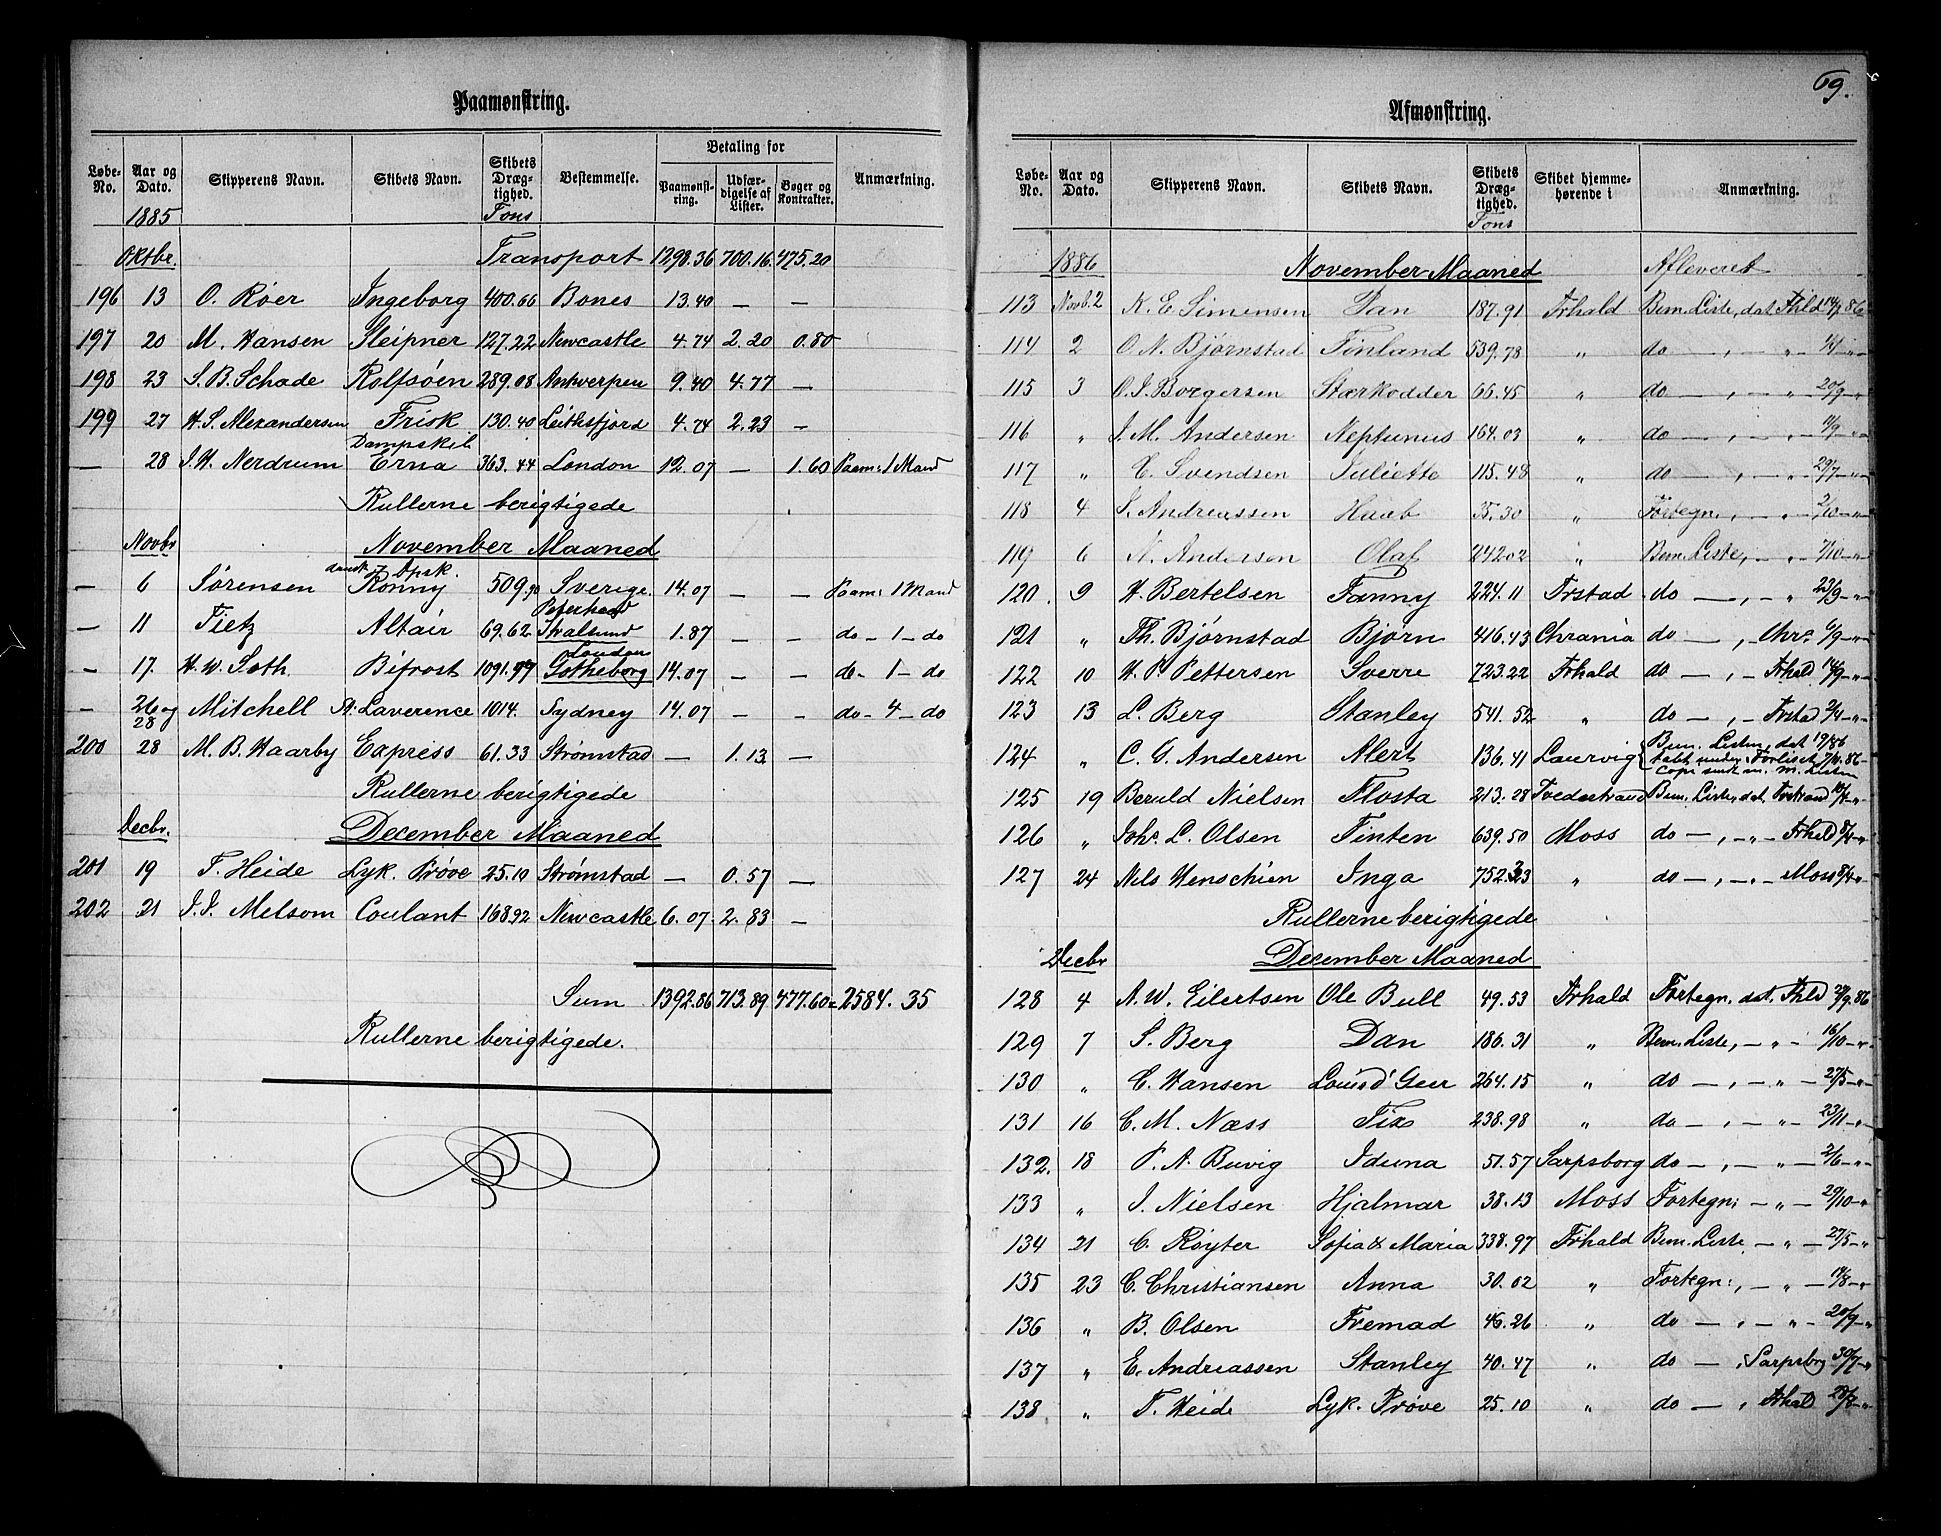 Paamønstring.
Løbe-No. Aar og Dato. Skipperens Navn. Skibets Navn. Skibets Dræg-tighed. Bestemmelse. Betaling for Paamønst-ring. Udfær-digelse af Lister. Bøger og Kontrakter. Anmærkning.
1885 Tons
Oktbr. Transport 1298.36 700.16 475.20
196 13 O. Røer Ingeborg 400.66 Bones 13.40 — —
197 20 M. Hansen Sleipner 127.22 Newcastle 4.74 2.20 0.80
198 23 S. B. Schade Rolfsøen 289.08 Antwerpen 9.40 4.77 —
199 27 H. S. Alexandersen Frisk 130.40 Leithsfjord 4.74 2.23 —
Dampskib
— 28 J. H. Nerdrum Erna 363.44 London 12.07 — 1.60 Paam: 1 Mand
Rullerne berigtigede
Novbr November Maaned
dansk Dpsk.
— 6 Sørensen Ronny 509.90 Sverige 14.07 — — Paam: 1 Mand
Peterhead
— 11 Tietz Altair 69.62 Stralsund 1.87 — — do - 1 - do
London
— 17. H. W. Soth Bifrost 1091.97 Gotheborg 14.07 — — do - 1 - do
— 26 og 28 Mitchell Laverence 1014. Sydney 14.07 — — do - 4 - do
200 28 M. B. Haarby Express 61.33 Strømstad — 1.13 —
Rullerne berigtigede
Decbr. December Maaned
201 19 T. Heide Lyk. Prøve 25.10 Strømstad — 0.57 —
202 21 J. J. Melsom Coulant 168.92 Newcastle 6.07 2.83 —
Sum 1392.86 713.89 477.60 = 2584.35
Rullerne berigtigede.
69.
Afmønstring.
Løbe-No. Aar og Dato. Skipperens Navn. Skibets Navn. Skibets Dræg-tighed. Skibet hjemme-hørende i Anmærkning.
Tons
1886 November Maaned Afleveret
113 Novb. 2 K. E. Simensen Dan 187.91 Frhald Bem. Liste, dat Fhld 14/9 86
114 2 O. N. Bjørnstad Finland 539.78 " do — , — " —
115 3 O. J. Borgersen Stærkodder 66.45 " do — , — " — 20/9 — "
116 " J. M. Andersen Neptunus 164.03 " do — , — " —
117 " C. Svendsen Juliette 115.48 " do — , — " — 29/7 — "
118 4 S. Andreassen Haab 35.30 " Fortegn. , — " — 2/10 — "
119 6 N. Andersen Olaf 242.02 " Bem. Liste, — " — 7/10 — "
120 9 H. Bertelsen Fanny 224.11 Frstad do — , — " 23/9 — "
121 " Th. Bjørnstad Bjørn 416.43 Chrania do — , Chra 6/9 — "
122 10 H. P. Pettersen Sverre 723.22 Frhald do — , — Frhald 14/9 — "
123 13 L. Berg Stanley 541.52 " do — , — Frstad 2/4 — "
124 " C. G. Andersen Alert 136.41 Laurvig Bem. Listen, dat 19/86 tabt under Forliset 7/11.86 — Copi sendt m. m. Listen
125 19 Beruld Nielsen Flosta 213.28 Tvedestrand Bem. Liste, dat. Tvstrand
126 " Johs. L. Olsen Finten 639.50 Moss do — , — " — Frhald 8/4 — "
127 24 Nils Henschien Inga 752.23 " do — , — " — Moss 8/4 — "
Rullerne berigtigede
Decbr December Maaned
128 4 A. W. Eilertsen Ole Bull 49.53 Frhald Fortegn. dat. Fhld 27/9 86
129 7 S. Berg Dan 186.31 " Bem. Liste, — " — 16/10 — "
130 " C. Hansen Louis d' Geer 264.15 " do — , — " — 27/5 — "
131 16 C. M. Næss Fix 238.98 " do — , — " — 23/11 — "
132. 18 P. A. Buvig Iduna 51.57 Sarpsborg do — , — " — 2/6 — "
133 " J. Nielsen Hjalmar 38.13 Moss Fortegn: — " — 29/10 — "
134 21 C. Røyter Sofia & Maria 338.97 Frhald Bem. Liste — " — 27/5 — "
135 23 C. Christiansen Anna 30.02 " Fortegn: , — " — 14/8 — "
136 " B. Olsen Fremad 46.26 " do — , — " — 20/9 — "
137 " E. Andreassen Stanley 40.47 " do — , Sarpsbrg 30/7 — "
138 " T. Heide Lyk. Prøve 25.10 " do — , Frhald 28/8 — "